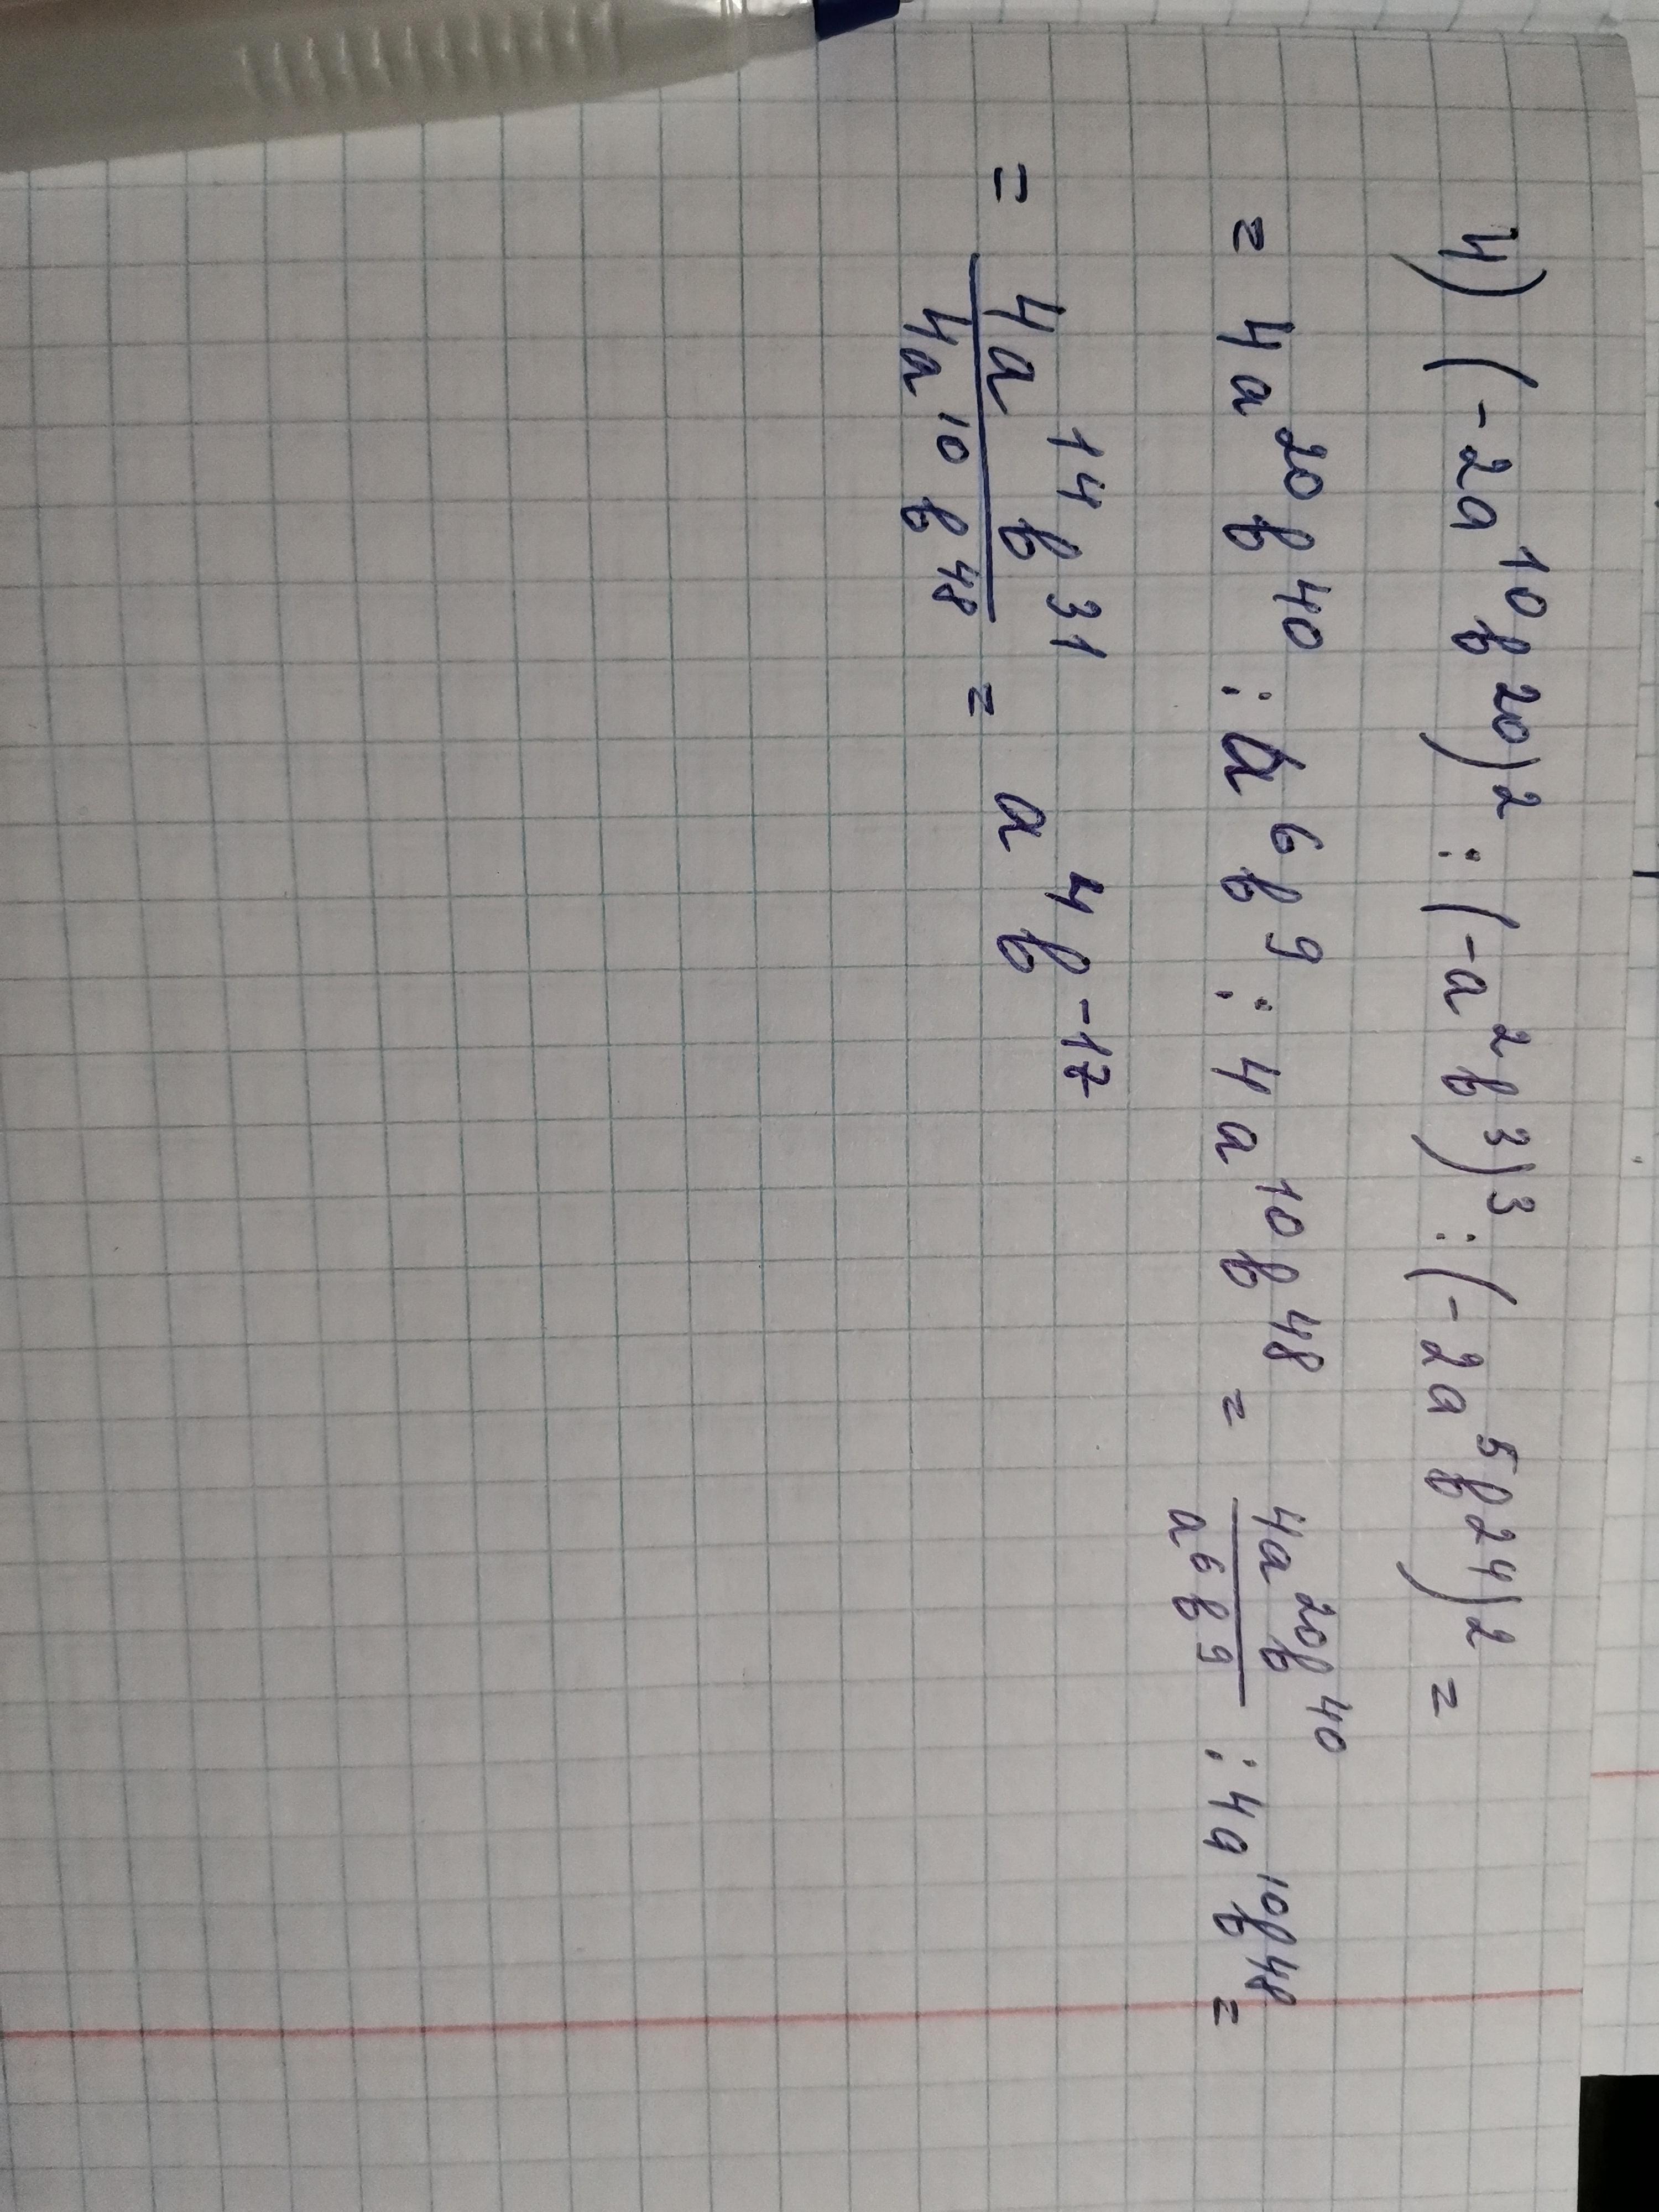 4) (-2a¹⁰b²⁰)² : (-a²b³)³ : (-2a⁵b²⁴)² =
= 4a²⁰b⁴⁰ : a⁶b⁹ : 4a¹⁰b⁴⁸ = 4a²⁰b⁴⁰/a⁶b⁹ : 4a¹⁰b⁴⁸ =
= 4a¹⁴b³¹/4a¹⁰b⁴⁸ = a⁴b⁻¹⁷